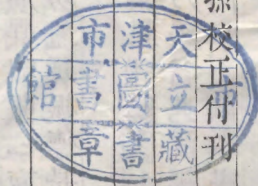 校正付刊
天津市
市立圖書館
藏書章